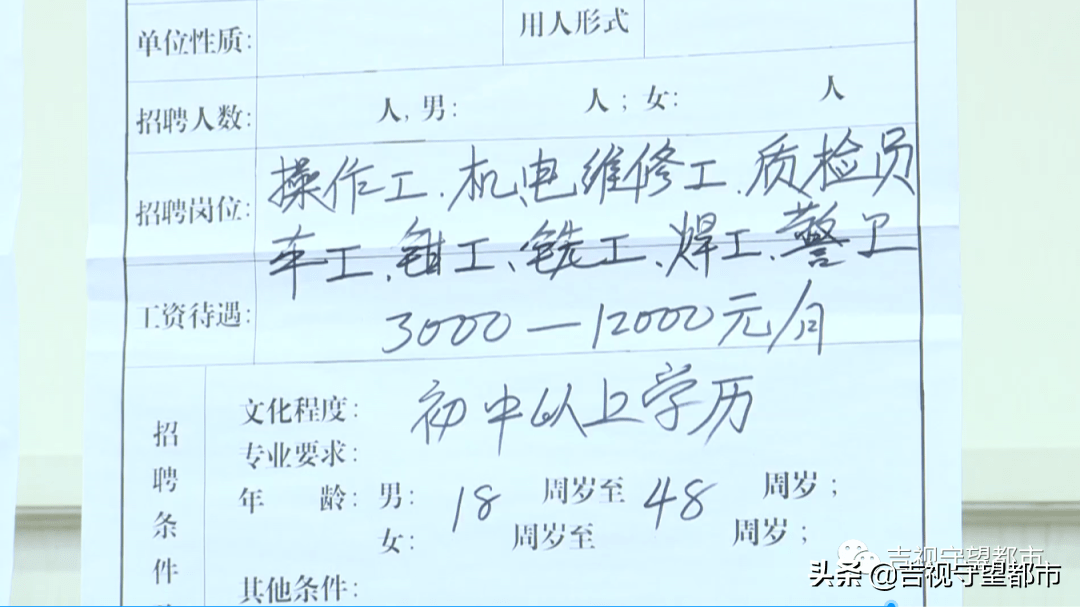 单位性质: 用人形式
招聘人数: 人, 男: 人; 女: 人
操作工、机电维修工、质检员
招聘岗位:
车工、钳工、铣工、焊工、警卫
工资待遇: 3000—12000元/月
招聘条件
文化程度: 初中以上学历
专业要求:
年龄: 男: 18周岁至48周岁;
女: 周岁至 周岁;
其他条件:
吉视守望都市
头条 @吉视守望都市